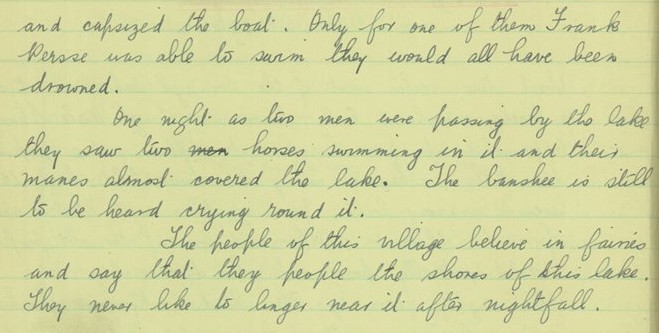 and capsized the boat. Only for one of them Frank
Persse was able to swim they would all have been
drowned.
One night as two men were passing by the lake
they saw two men horses swimming in it and their
manes almost covered the lake. The banshee is still
to be heard crying round it.
The people of this village believe in fairies
and say that they people the shores of this lake.
They never like to linger near it after nightfall.